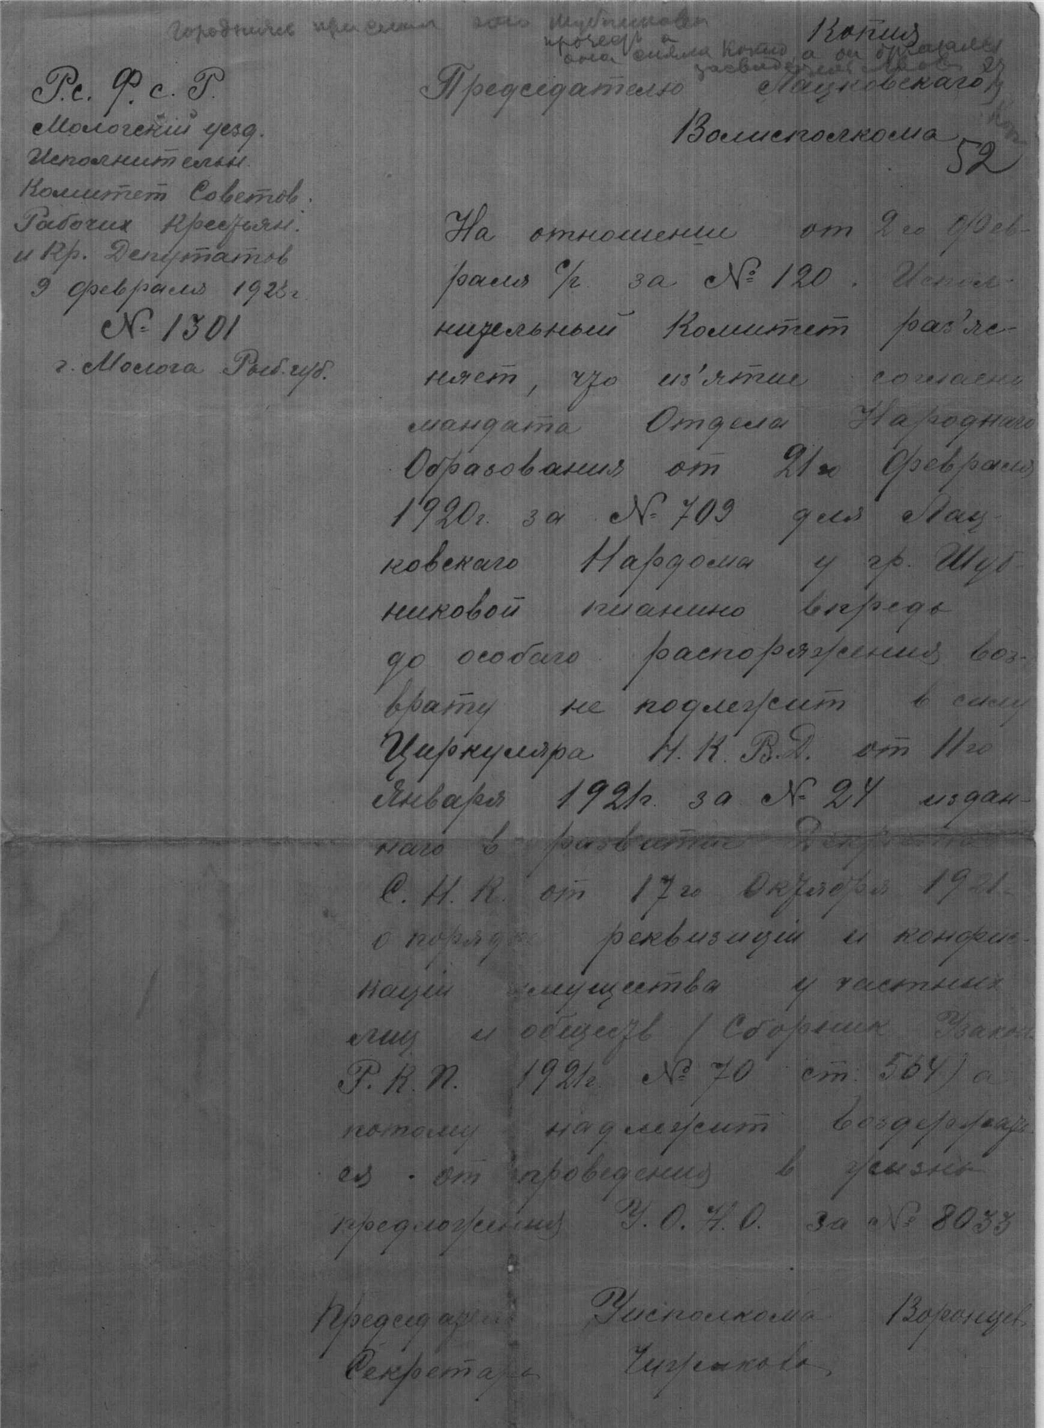 Городничев прислал
Копия
прочесть а
она сняла копию а он отказался
Р.с.Ф.с.Р.
Мологскій уезд.
Исполнительн.
Комитет Советов.
Рабочих Крестьян.
и Кр. Депутатов
9 февраля 1923 г.
№ 1301
г. Молога Рыб. губ.
Председателю Лацковскаго
Волисполкома
52
На отношение от 2го Фев-
раля с/г за № 120. Испол-
нительный Комитет раз'яс-
няет, что из'ятие согласно
мандата Отдела Народнаго
Образования от 21го февраля
1920г. за № 709 для Лац-
ковскаго Нардома у гр. Шуб-
никовой пианино впредь
до особаго распоряжения воз-
врату не подлежит в силу
Циркуляра Н.К.В.Д. от 11го
Января 1921г. за № 24 издан-
наго в развитие Декрета
С.Н.К. от 17го Октября 1921
о порядке реквизиции и конфис-
кации имущества у частных
лиц и обществ / Сборник Узакон.
Р.К.П. 1921г № 70 ст. 564) а
потому надлежит воздержать-
ся от проведения в жизнь
предложения У.О.Н.О. за № 8033
Председатель Уисполкома Воронцов
Секретарь